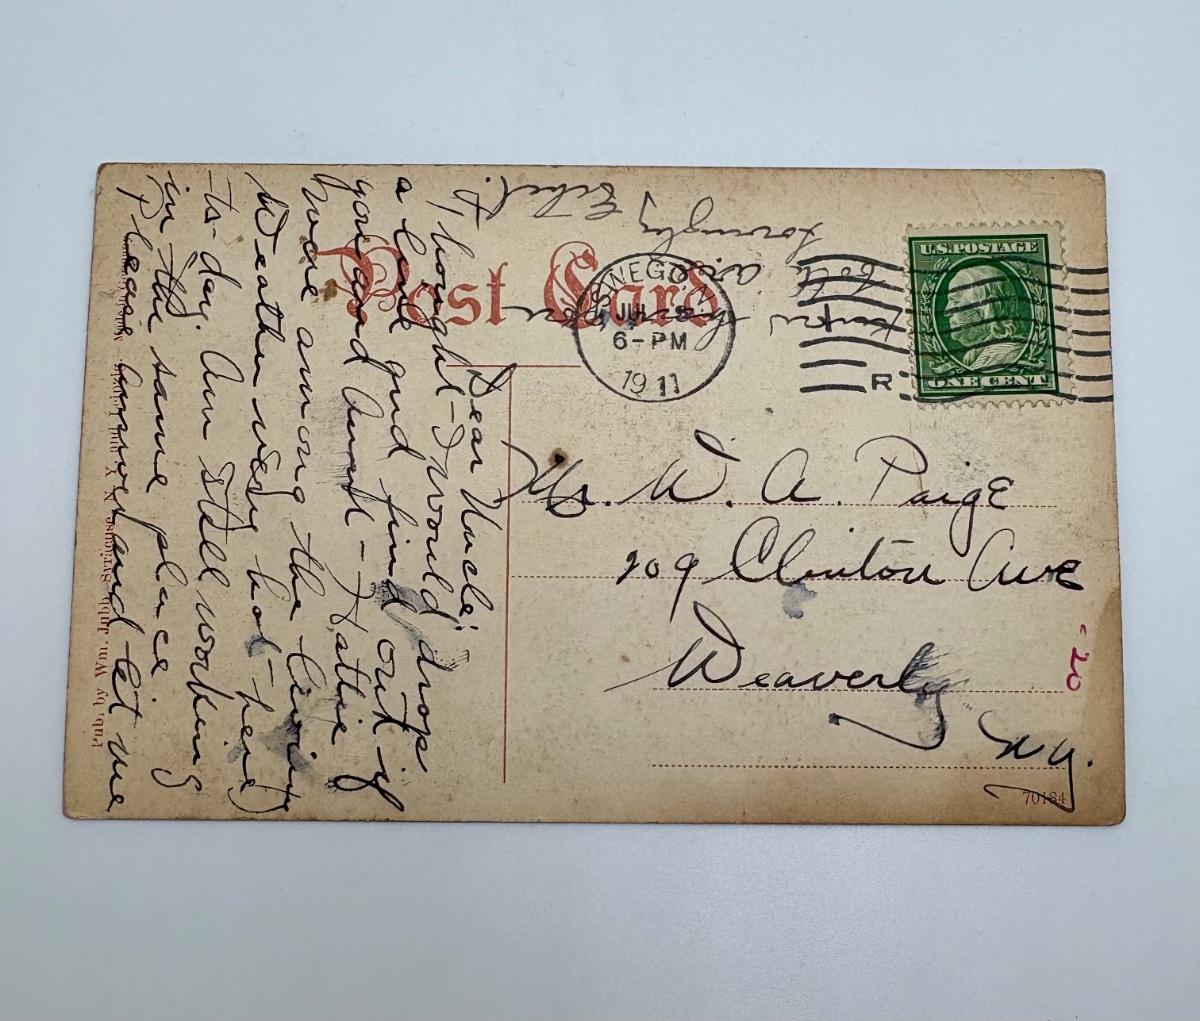 Post Card
U.S. POSTAGE
ONE CENT
JUL
6-PM
1911
R
Dear Uncle;
Thought I would drop
a line and find out if
you and Aunt - Hattie
were among the living
Weather very hot - here
to-day. Am still working
in the same place
Please answer and let me
are
Lovingly
Ethel.
Mr. W. A. Paige
209 Clinton Ave
Waverly
N.Y.
20
70184
Pub. by Wm. Jubb, Syracuse, N. Y.